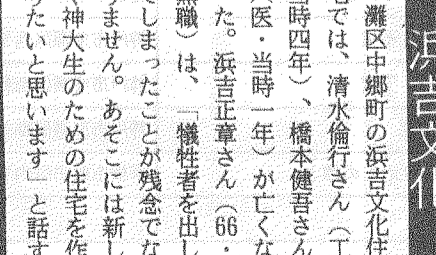 浜吉文化
灘区中郷町の浜吉文化住
では、清水倫行さん（工
時四年）、橋本健吾さん
医・当時一年）が亡くな
た。浜吉正章さん（66・
無職）は、「犠牲者を出し
てしまったことが残念でな
りません。あそこには新し
神大生のための住宅を作
りたいと思います」と話す